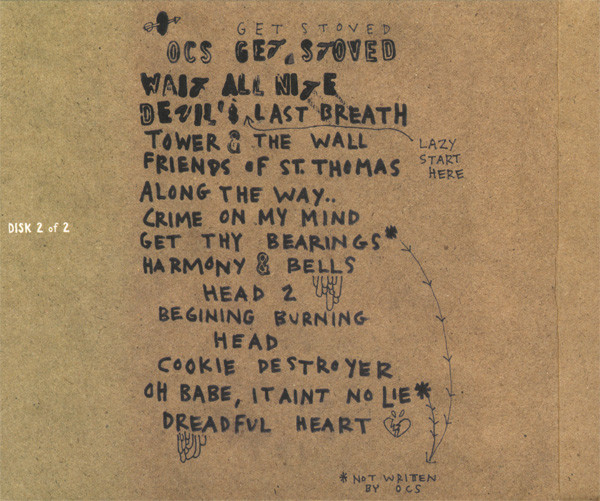 GET STOVED
OCS GET STOVED
WAIT ALL NITE
DEVIL'S LAST BREATH
TOWER & THE WALL
LAZY
START
HERE
FRIENDS OF ST. THOMAS
ALONG THE WAY..
CRIME ON MY MIND
DISK 2 of 2
GET THY BEARINGS*
HARMONY & BELLS
HEAD 2
BEGINING BURNING
HEAD
COOKIE DESTROYER
OH BABE, IT AINT NO LIE*
DREADFUL HEART
*NOT WRITTEN
BY OCS